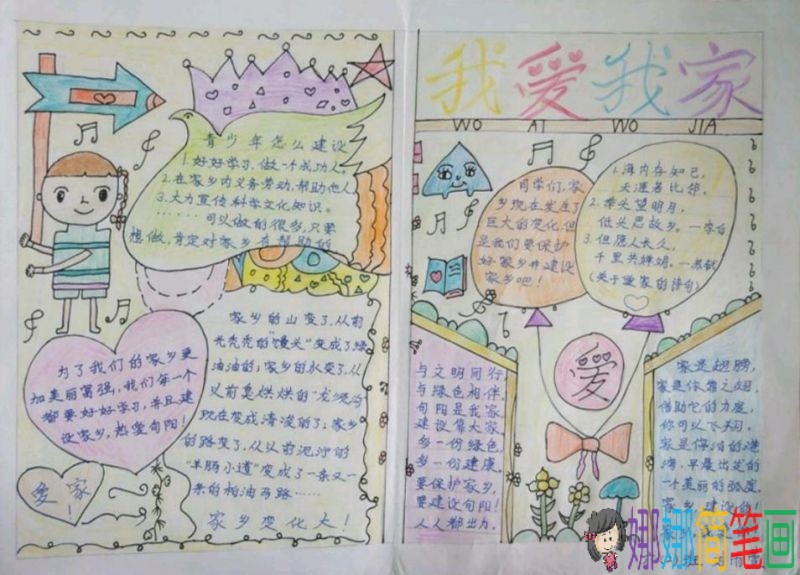 我爱我家
WO AI WO JIA
青少年怎么建设
1.好好学习,做一个成功人。
2.在家乡内义务劳动,帮助他人。
3.大力宣传科学文化知识。
……可以做的很多,只要
想做,肯定对家乡有帮助的
为了我们的家乡更
加美丽富强,我们每一个
都要好好学习,并且建
设家乡,热爱旬阳!
爱家!
家乡的山变了,从前
光秃秃的"馒头"变成了绿
油油的;家乡的水变了,从
以前臭烘烘的
现在变成清凌的了;家乡
的路变了,从以前泥泞的
"羊肠小道"变成了一条又一
条的柏油马路……
家乡变化大!
同学们,家
乡现在发生了
巨大的变化,但
是我们要保护
好家乡并建设
家乡吧!
1.海内存知己,
天涯若比邻。
2.举头望明月,
低头思故乡。—李白
3.但愿人长久,
千里共婵娟。—苏轼
(关于爱家的诗句)
爱
与文明同行
与绿色相伴,
旬阳是我家
建设靠大家
多一份绿色,
多一份健康。
要保护家乡,
要建设旬阳!
人人都出力。
家是翅膀,
家是你靠之翅,
借助它的力度,
你可以飞
家是停泊的港
湾,早晨出发的
一个美丽的弧度。
娜娜简笔画